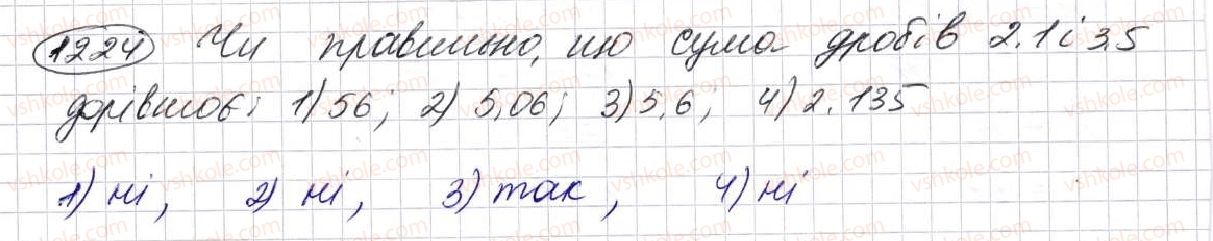 1224 Чи правильно, що сума дробів 2.1 і 3,5
дорівнює: 1) 56; 2) 5,06; 3) 5,6; 4) 2.135
1) ні, 2) ні, 3) так, 4) ні